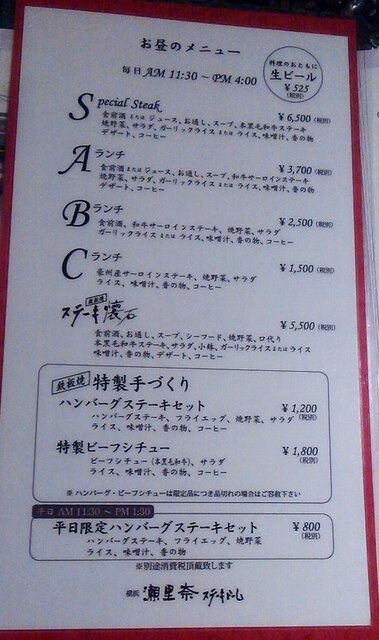 お昼のメニュー
毎日 AM 11:30 ～ PM 4:00
料理のおともに
生ビール
¥ 525
(税別)
Special Steak ¥ 6,500 (税別)
食前酒 または ジュース、お通し、スープ、本黒毛和牛ステーキ
焼野菜、サラダ、ガーリックライス または ライス、味噌汁、香の物
デザート、コーヒー
A ランチ ¥ 3,700 (税別)
食前酒 または ジュース、お通し、スープ、和牛サーロインステーキ
焼野菜、サラダ、ガーリックライス または ライス、味噌汁、香の物
デザート、コーヒー
B ランチ ¥ 2,500 (税別)
食前酒、和牛サーロインステーキ、焼野菜、サラダ
ガーリックライス または ライス、味噌汁、香の物、コーヒー
C ランチ ¥ 1,500 (税別)
豪州産サーロインステーキ、焼野菜、サラダ
ライス、味噌汁、香の物、コーヒー
鉄板焼
ステーキ懐石 ¥ 5,500 (税別)
食前酒、お通し、スープ、シーフード、焼野菜、口代り
本黒毛和牛ステーキ、サラダ、小鉢、ガーリックライス または ライス
味噌汁、香の物、デザート、コーヒー
鉄板焼 特製手づくり
ハンバーグステーキセット ¥ 1,200
(税別)
ハンバーグステーキ、フライエッグ、焼野菜、サラダ
ライス、味噌汁、香の物、コーヒー
特製ビーフシチュー ¥ 1,800
(税別)
ビーフシチュー(本黒毛和牛)、サラダ
ライス、味噌汁、香の物、コーヒー
※ ハンバーグ・ビーフシチューは限定品につき品切れの場合はご容赦下さい
平日 AM 11:30 ～ PM 1:30
平日限定ハンバーグステーキセット ¥ 800
(税別)
ハンバーグステーキ、フライエッグ、焼野菜
ライス、味噌汁、香の物
※別途消費税頂戴致します
横浜 瀬里奈 ステーキルーム